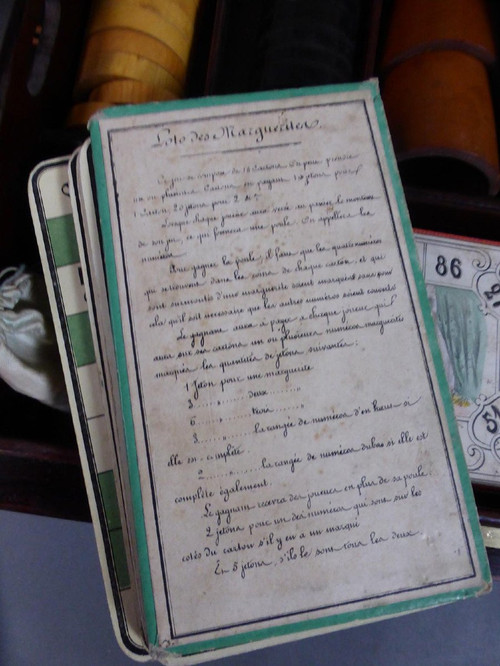 Loto des Marguerites.
Ce jeu se compose de 18 Cartons. On peut prendre
un ou plusieurs Cartons en payant 10 jetons pour
1 Carton 20 jetons pour 2 &c.
Lorsque chaque joueur aura versé au panier le nombre
de son jeu, ce qui formera une poule. On appellera les
numéros.
Pour gagner la poule, il faut que les quatre numéros
qui se trouvent dans les coins de chaque carton et qui
sont surmontés d'une marguerite soient marqués sans pour
cela qu'il soit nécessaire que les autres numéros soient couverts
Le gagnant aura à payer à chaque joueur qui
aura sur ses cartons un ou plusieurs numéros marguerites
marqués les quantités de jetons suivantes:
1 Jeton pour une marguerite
3 ......... deux .........
6 ......... trois .........
3 ......... la rangée de numéros d'en haut si
elle est complète
2 ......... la rangée de numéros du bas si elle est
complète également.
Le gagnant recevra des joueurs en plus de sa poule:
2 jetons pour un des numéros qui sont sur les
cotés du carton s'il y en a un marqué
Et 5 jetons, s'ils le sont tous les deux.
86